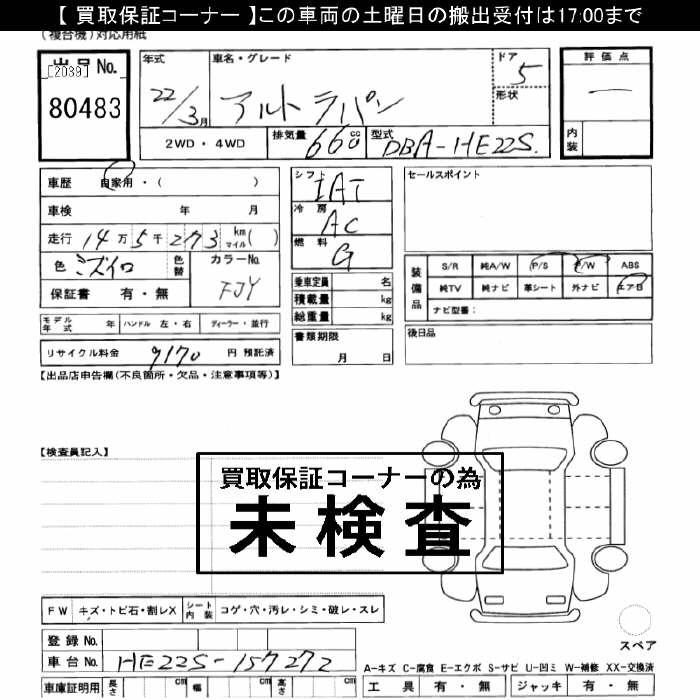 【 買取保証コーナー 】この車両の土曜日の搬出受付は17:00まで
(複合機)対応用紙
出品No.
[2039]
80483
年式
22/3月
車名・グレード
アルト ラパン
ドア
5
形状
評価点
ー
内装
2WD・4WD
排気量
660
cc
型式
DBA-HE22S
車歴
自家用・( )
車検 年 月
走行 14万5千273 km マイル( )
色 ミズイロ
色替
カラーNo.
FJY
保証書 有・無
シフト
IAT
冷房
AC
燃料
G
乗車定員 名
積載量 kg
総重量 kg
セールスポイント
装備品
S/R 純A/W P/S P/W ABS
純TV 純ナビ 革シート 外ナビ エアB
ナビ型番:
モデル年式 年
ハンドル 左・右
ディーラー・並行
書類期限
月 日
後日品
リサイクル料金 9170 円 預託済
【出品店申告欄(不良箇所・欠品・注意事項等)】
【検査員記入】
買取保証コーナーの為
未検査
FW キズ・トビ石・割レX
シート内装 コゲ・穴・汚レ・シミ・破レ・スレ
登録No.
車台No. HE22S-157272
車庫証明用 長さ cm 幅 cm 高さ cm
スペア
A-キズ C-腐食 E-エクボ S-サビ U-凹ミ W-補修 XX-交換済
工具 有・無 ジャッキ 有・無